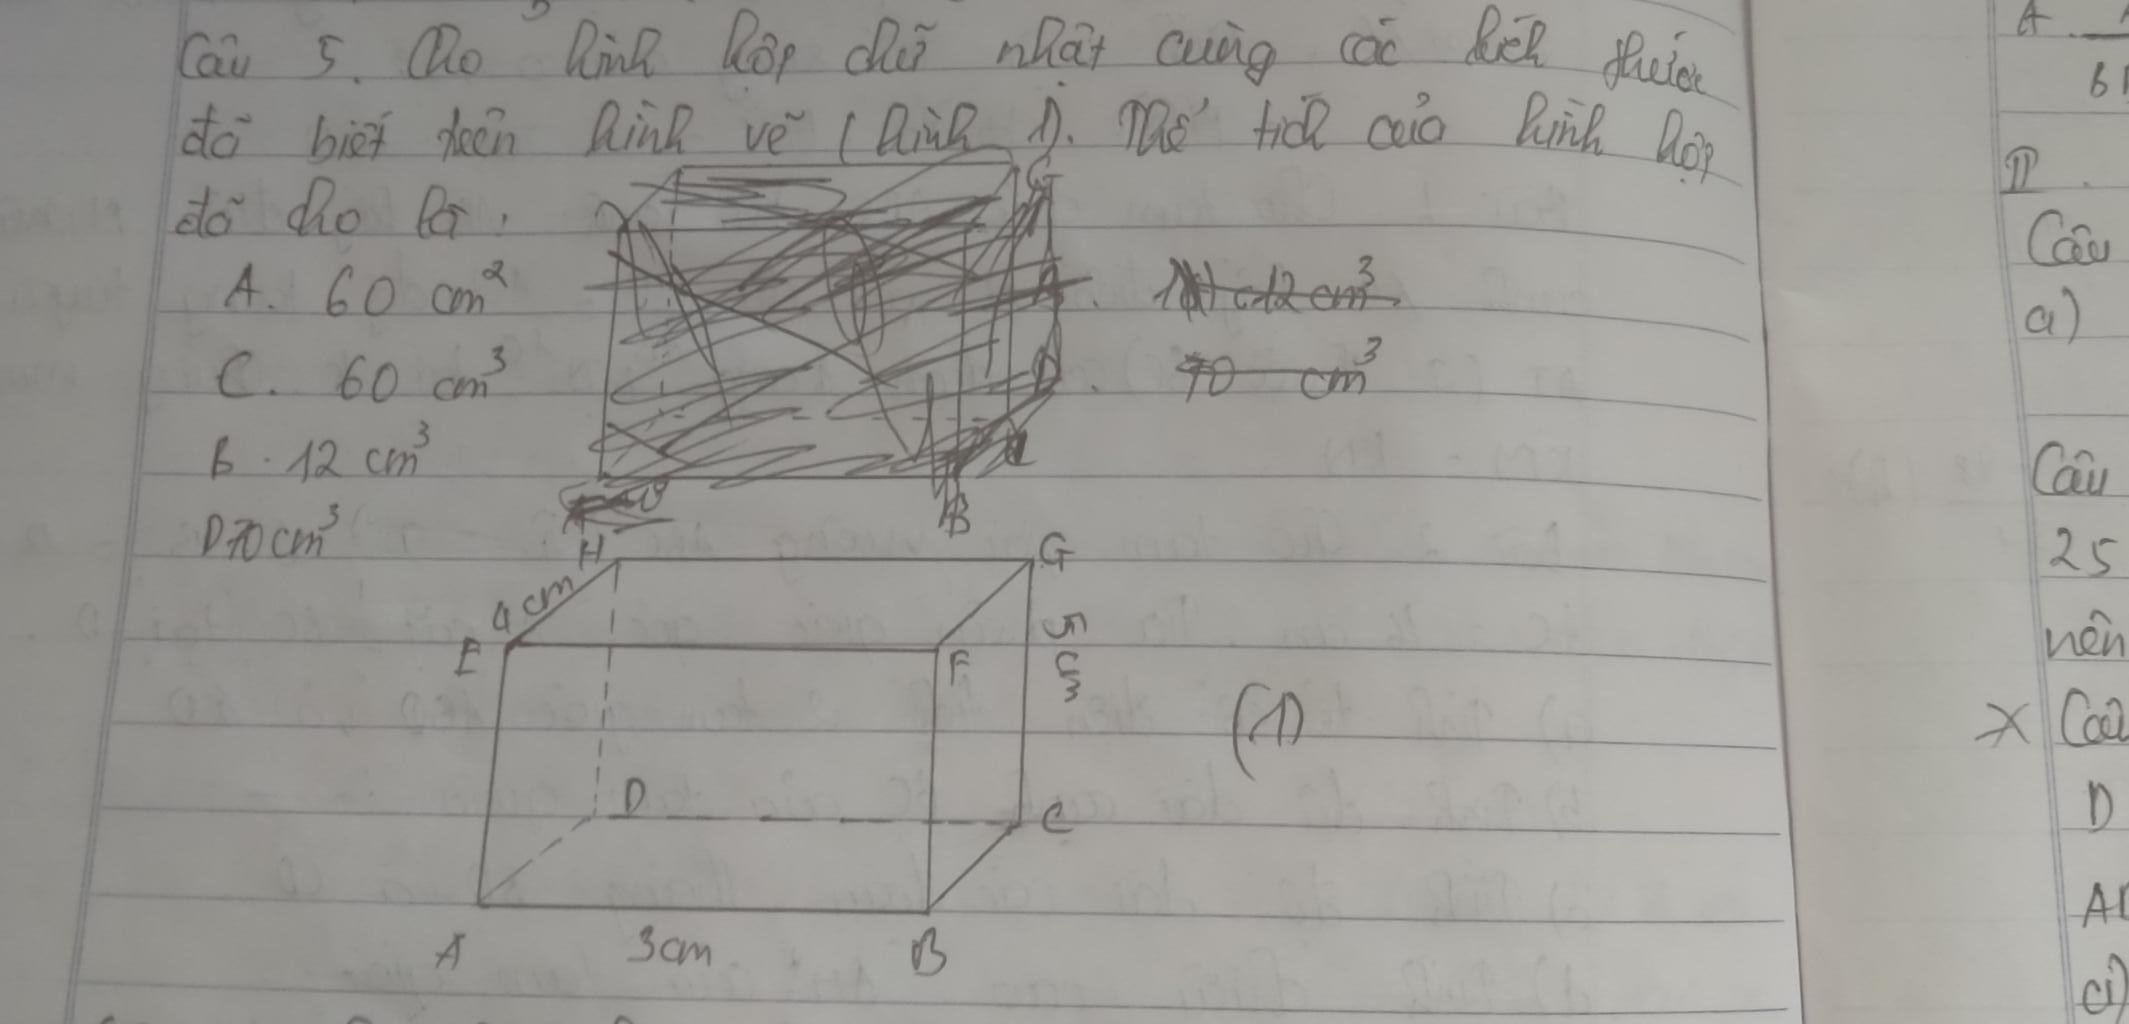 Câu 5. Cho hình hộp chữ nhật cùng các kích thước
đã biết trên hình vẽ (hình 1). Thể tích của hình hộp
đã cho là:
A. 60 cm²
12 cm³
C. 60 cm³
70 cm³
B. 12 cm³
D 70 cm³
B
H
G
4 cm
E
F
5 cm
(1)
D
C
A
3cm
B
A
6
II.
Câu
a)
Câu
25
nên
X
D